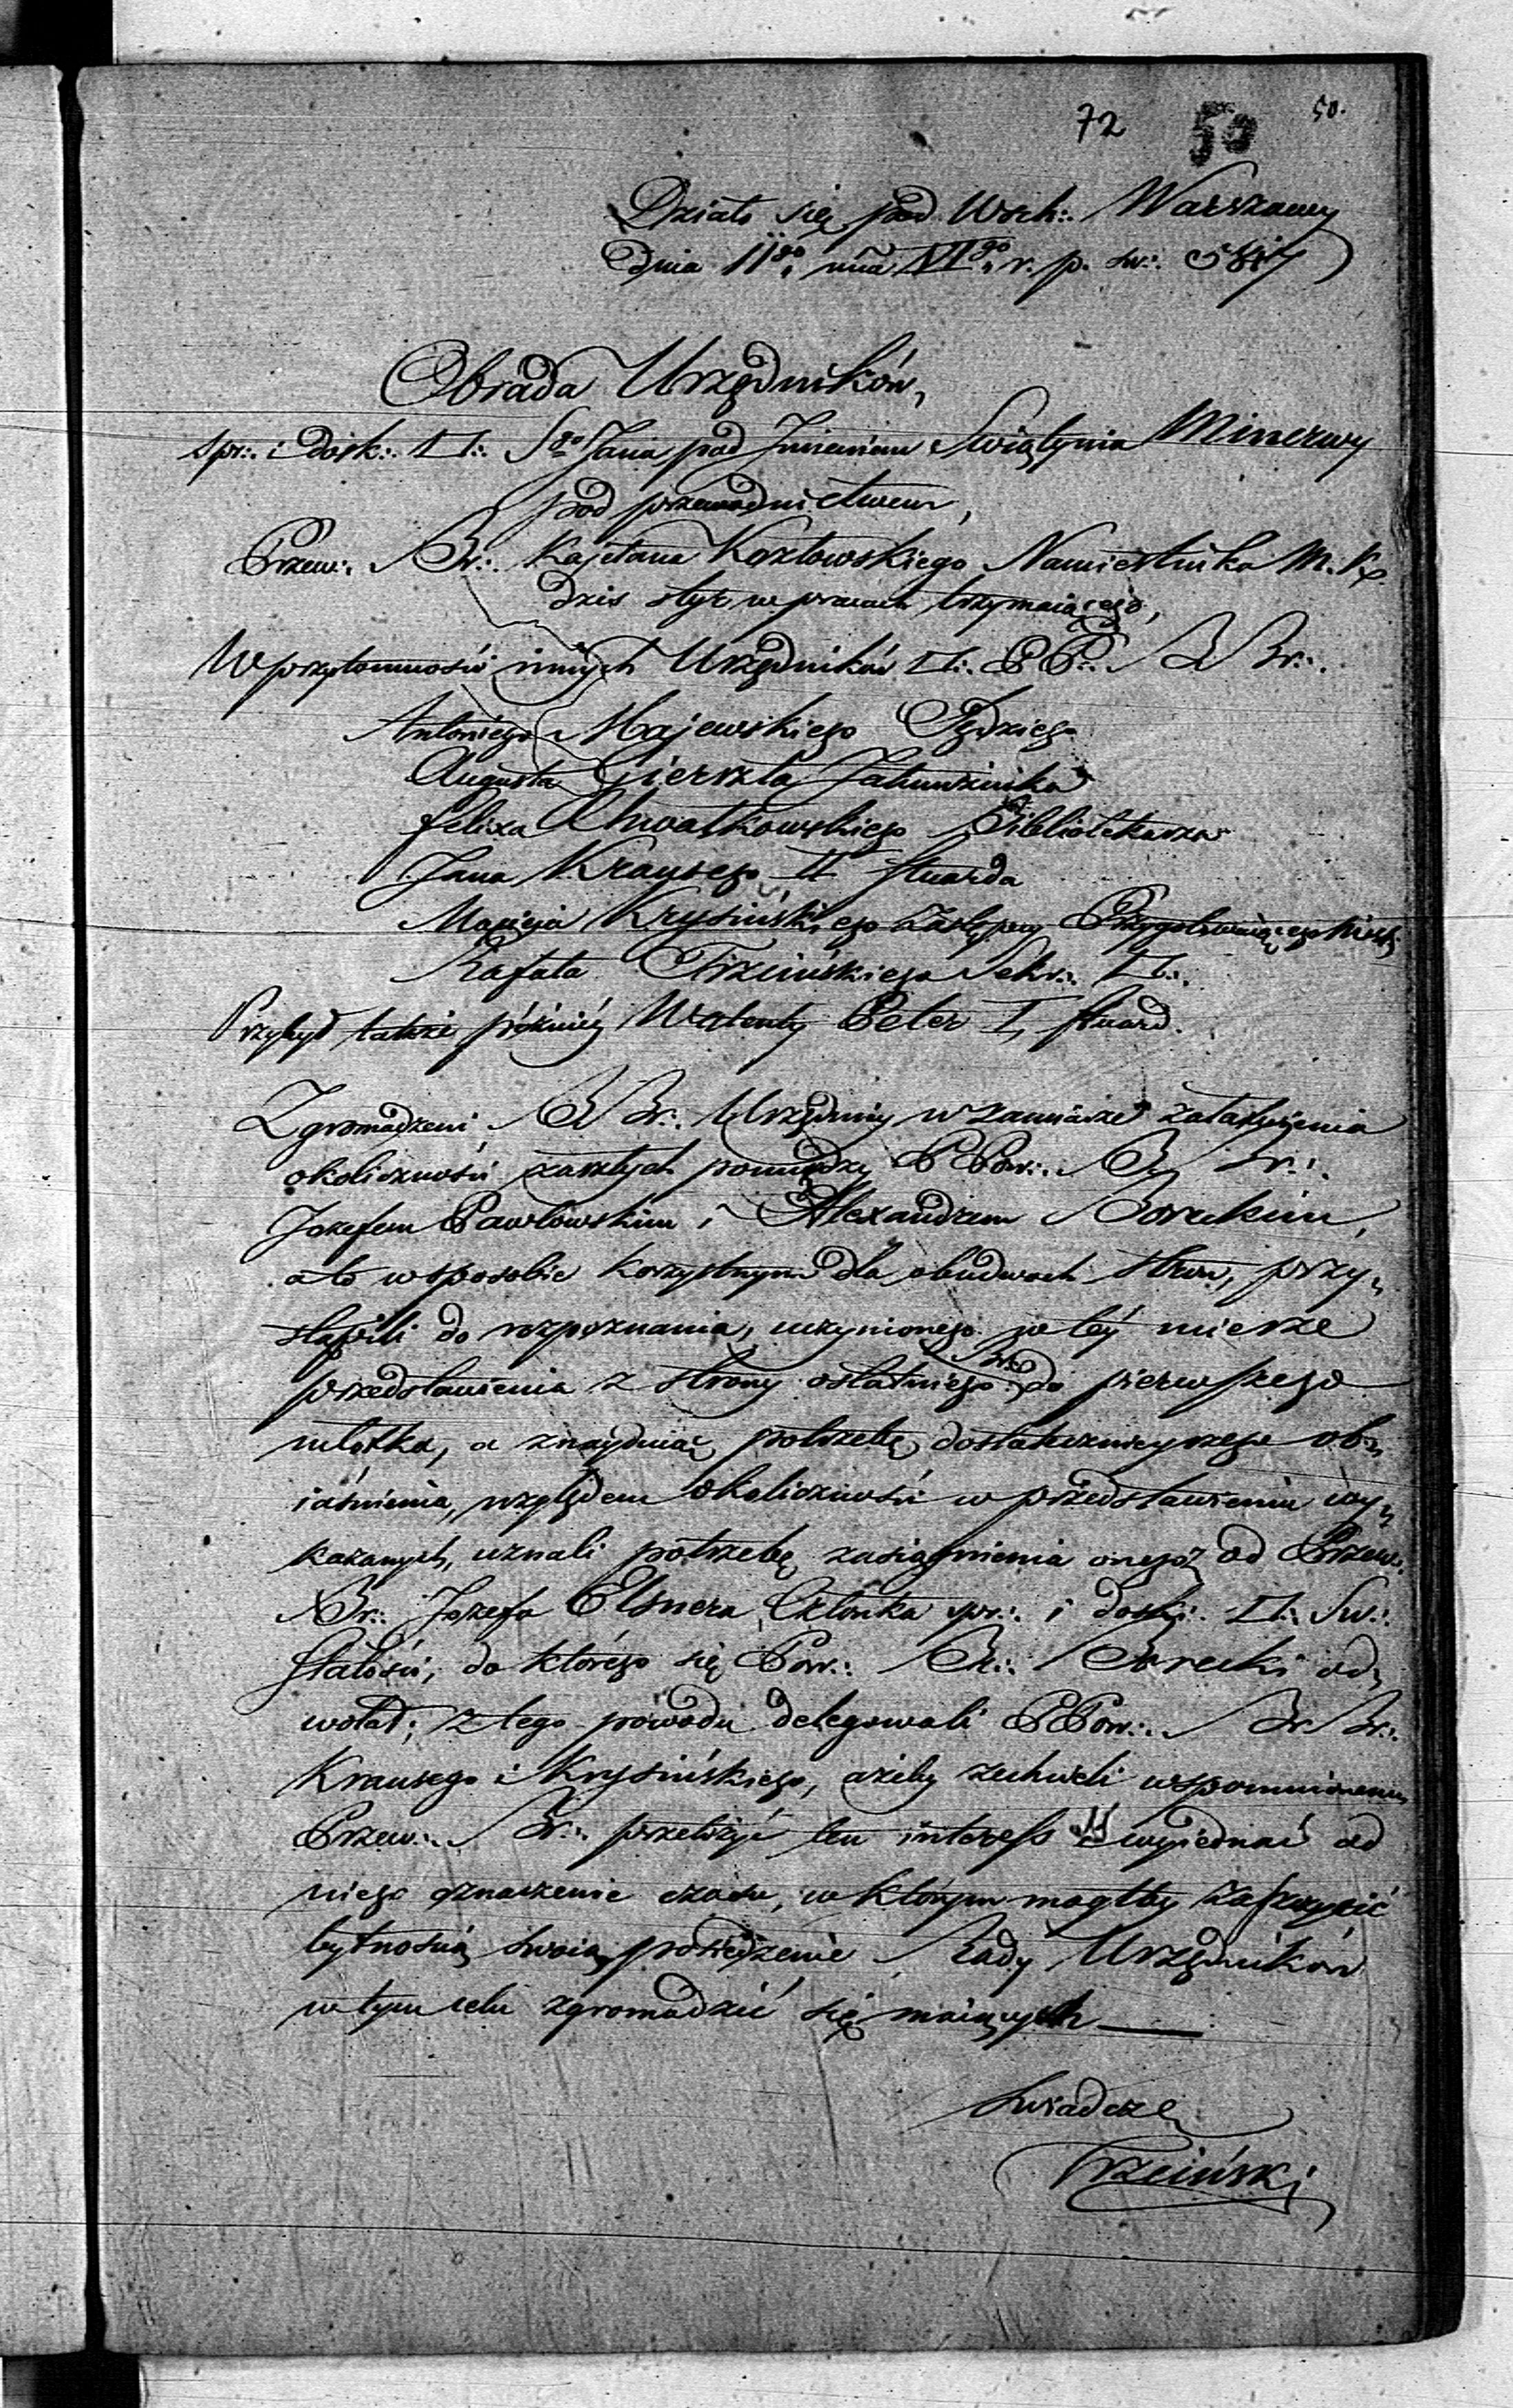 72 50 50.
Działo się pod Wsch:. Warszawy
Dnia 11go mca VIgo r. p. św:. 5817
Obrada Urzędników,
spr:. i dosk:. □:. Sgo Jana pod Imieniem Swiątynia Minerwy
pod przewodnictwem,
Przew:. Br:. Kajetana Kozłowskiego Namiestnika M. K.
dziś ster w pracach trzymaiącego,
W przytomności innych Urzędników □:. PP:. BBr:.
Antoniego Majewskiego Sędziego
Augusta Gierszta Jałmużnika
Felixa Chwatkowskiego Bibliotekarza
Jana Krausego II Stuarda
Macieja Krysińskiego Zastępcy Przygotowuiącego
Rafała Trzcińskiego Sekr:. □:.
Przybył także późniéy Walenty Peter I, Stuard.
Zgromadzeni BBr:. Urzędnicy w zamiarze załatwienia
okoliczności zaszłych pomiędzy PPow:. BBr:.
Jozefem Pawłowskim i Alexandrem Boreckim,
a to w sposobie korzystnym dla obudwoch stron, przy„
stąpili do rozpoznania, uczynionego w téy mierze
przedstawienia z strony ostatniego Br: do pierwszego
młotka, a znayduiąc potrzebę dostatecznieyszego ob„
iaśnienia, względem okoliczności w przedstawieniu wy„
kazanych, uznali potrzebę zasiągnienia onego od Przew:
Br:. Jozefa Elsnera Członka spr:. i dosk:. □:. Sw:.
Stałości, do którego się Pow:. Br:. Borecki od„
wołał; z tego powodu delegowali PPow:. BrBr:.
Krausego i Krysińskiego, ażeby zechcieli wspomnionemu
Przew:. Br:. przełożyć ten interess i wyiednać od
niego oznaczenie czasu, w którym mogłby zaszczycić
bytnością swoią posiedzenie Rady Urzędników
w tym celu zgromadzić się maiących
Swiadczę
Trzciński